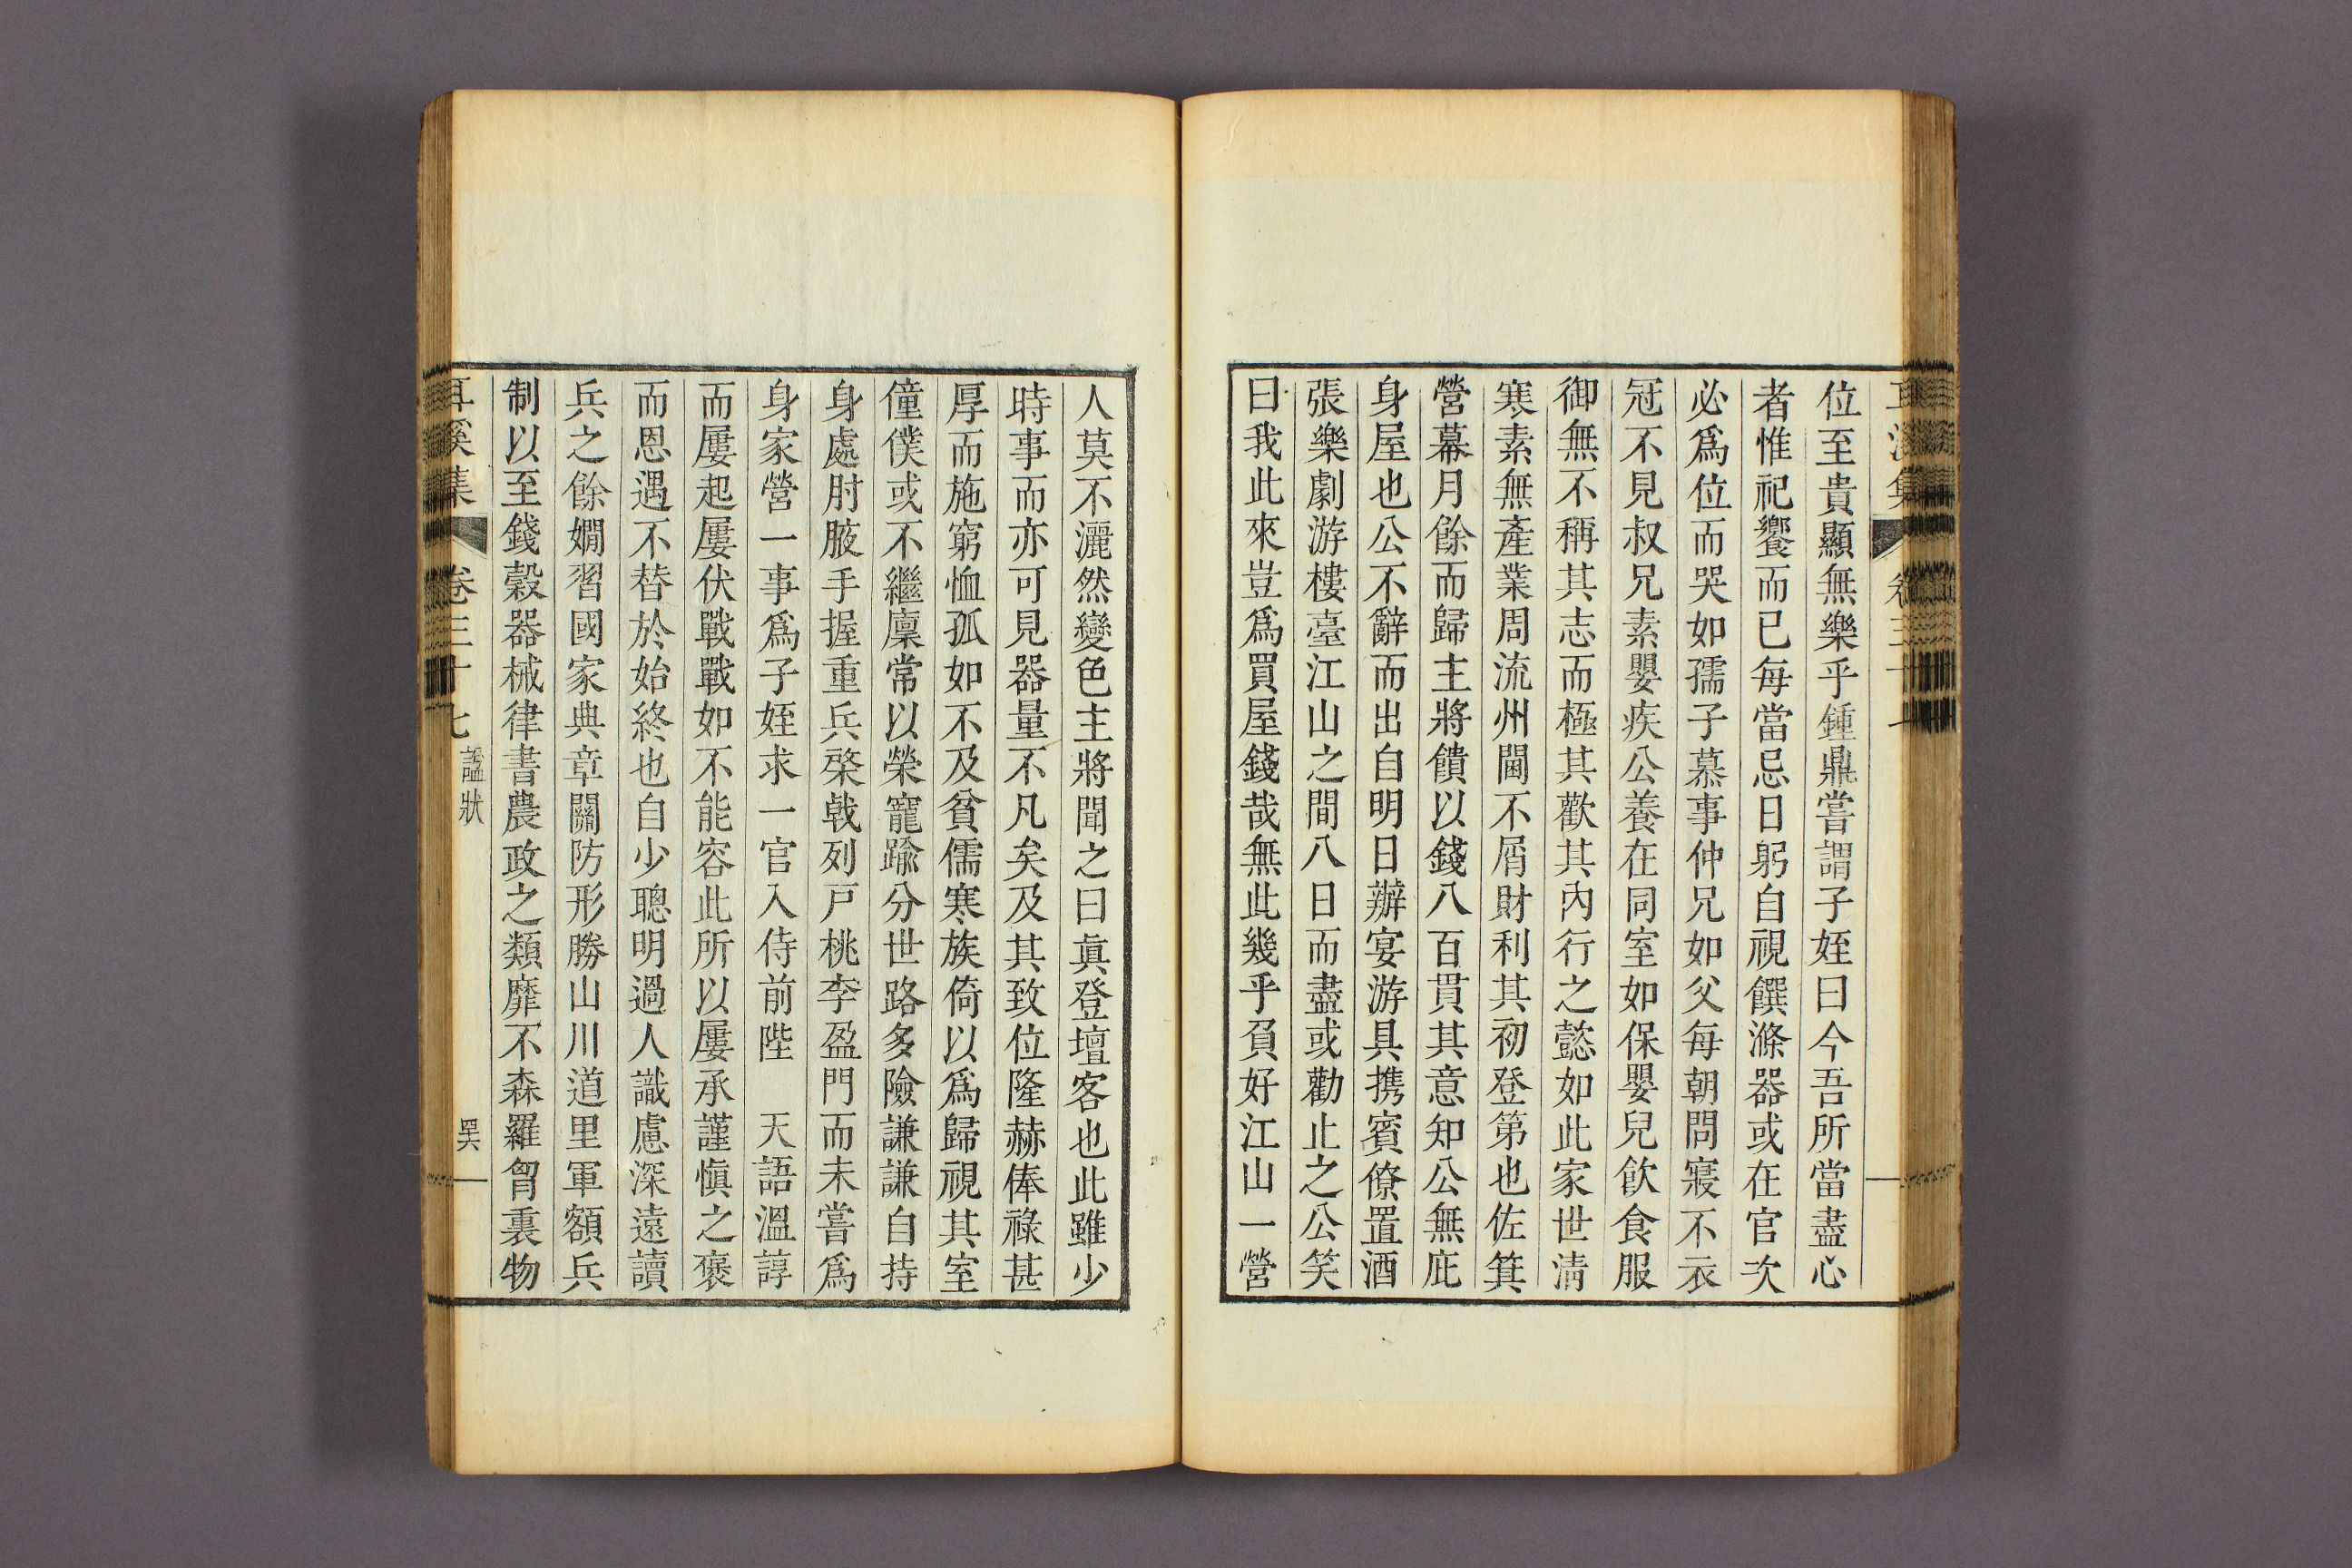 位至貴顯無樂乎鍾鼎嘗謂子姪曰今吾所當盡心
者惟祀饗而已每當忌日躬自視饌滌器或在官次
必爲位而哭如孺子慕事仲兄如父每朝問寢不衣
冠不見叔兄素嬰疾公養在同室如保嬰兒飮食服
御無不稱其志而極其歡其內行之懿如此家世淸
寒素無產業周流州閫不屑財利其初登第也佐箕
營幕月餘而歸主將饋以錢八百貫其意知公無庇
身屋也公不辭而出自明日辦宴游具携賓僚置酒
張樂劇游樓臺江山之間八日而盡或勸止之公笑
曰我此來豈爲買屋錢哉無此幾乎負好江山一營
人莫不灑然變色主將聞之曰眞登壇客也此雖少
時事而亦可見器量不凡矣及其致位隆赫俸祿甚
厚而施窮恤孤如不及貧儒寒族倚以爲歸視其室
僮僕或不繼廩常以榮寵踰分世路多險謙謙自持
身處肘腋手握重兵棨戟列戶桃李盈門而未嘗爲
身家營一事爲子姪求一官入侍前陛 天語溫諄
而屢起屢伏戰戰如不能容此所以屢承謹愼之褒
而恩遇不替於始終也自少聰明過人識慮深遠讀
兵之餘嫺習國家典章關防形勝山川道里軍額兵
制以至錢穀器械律書農政之類靡不森羅胷裏物
耳溪集 卷三十七 謚狀 四六